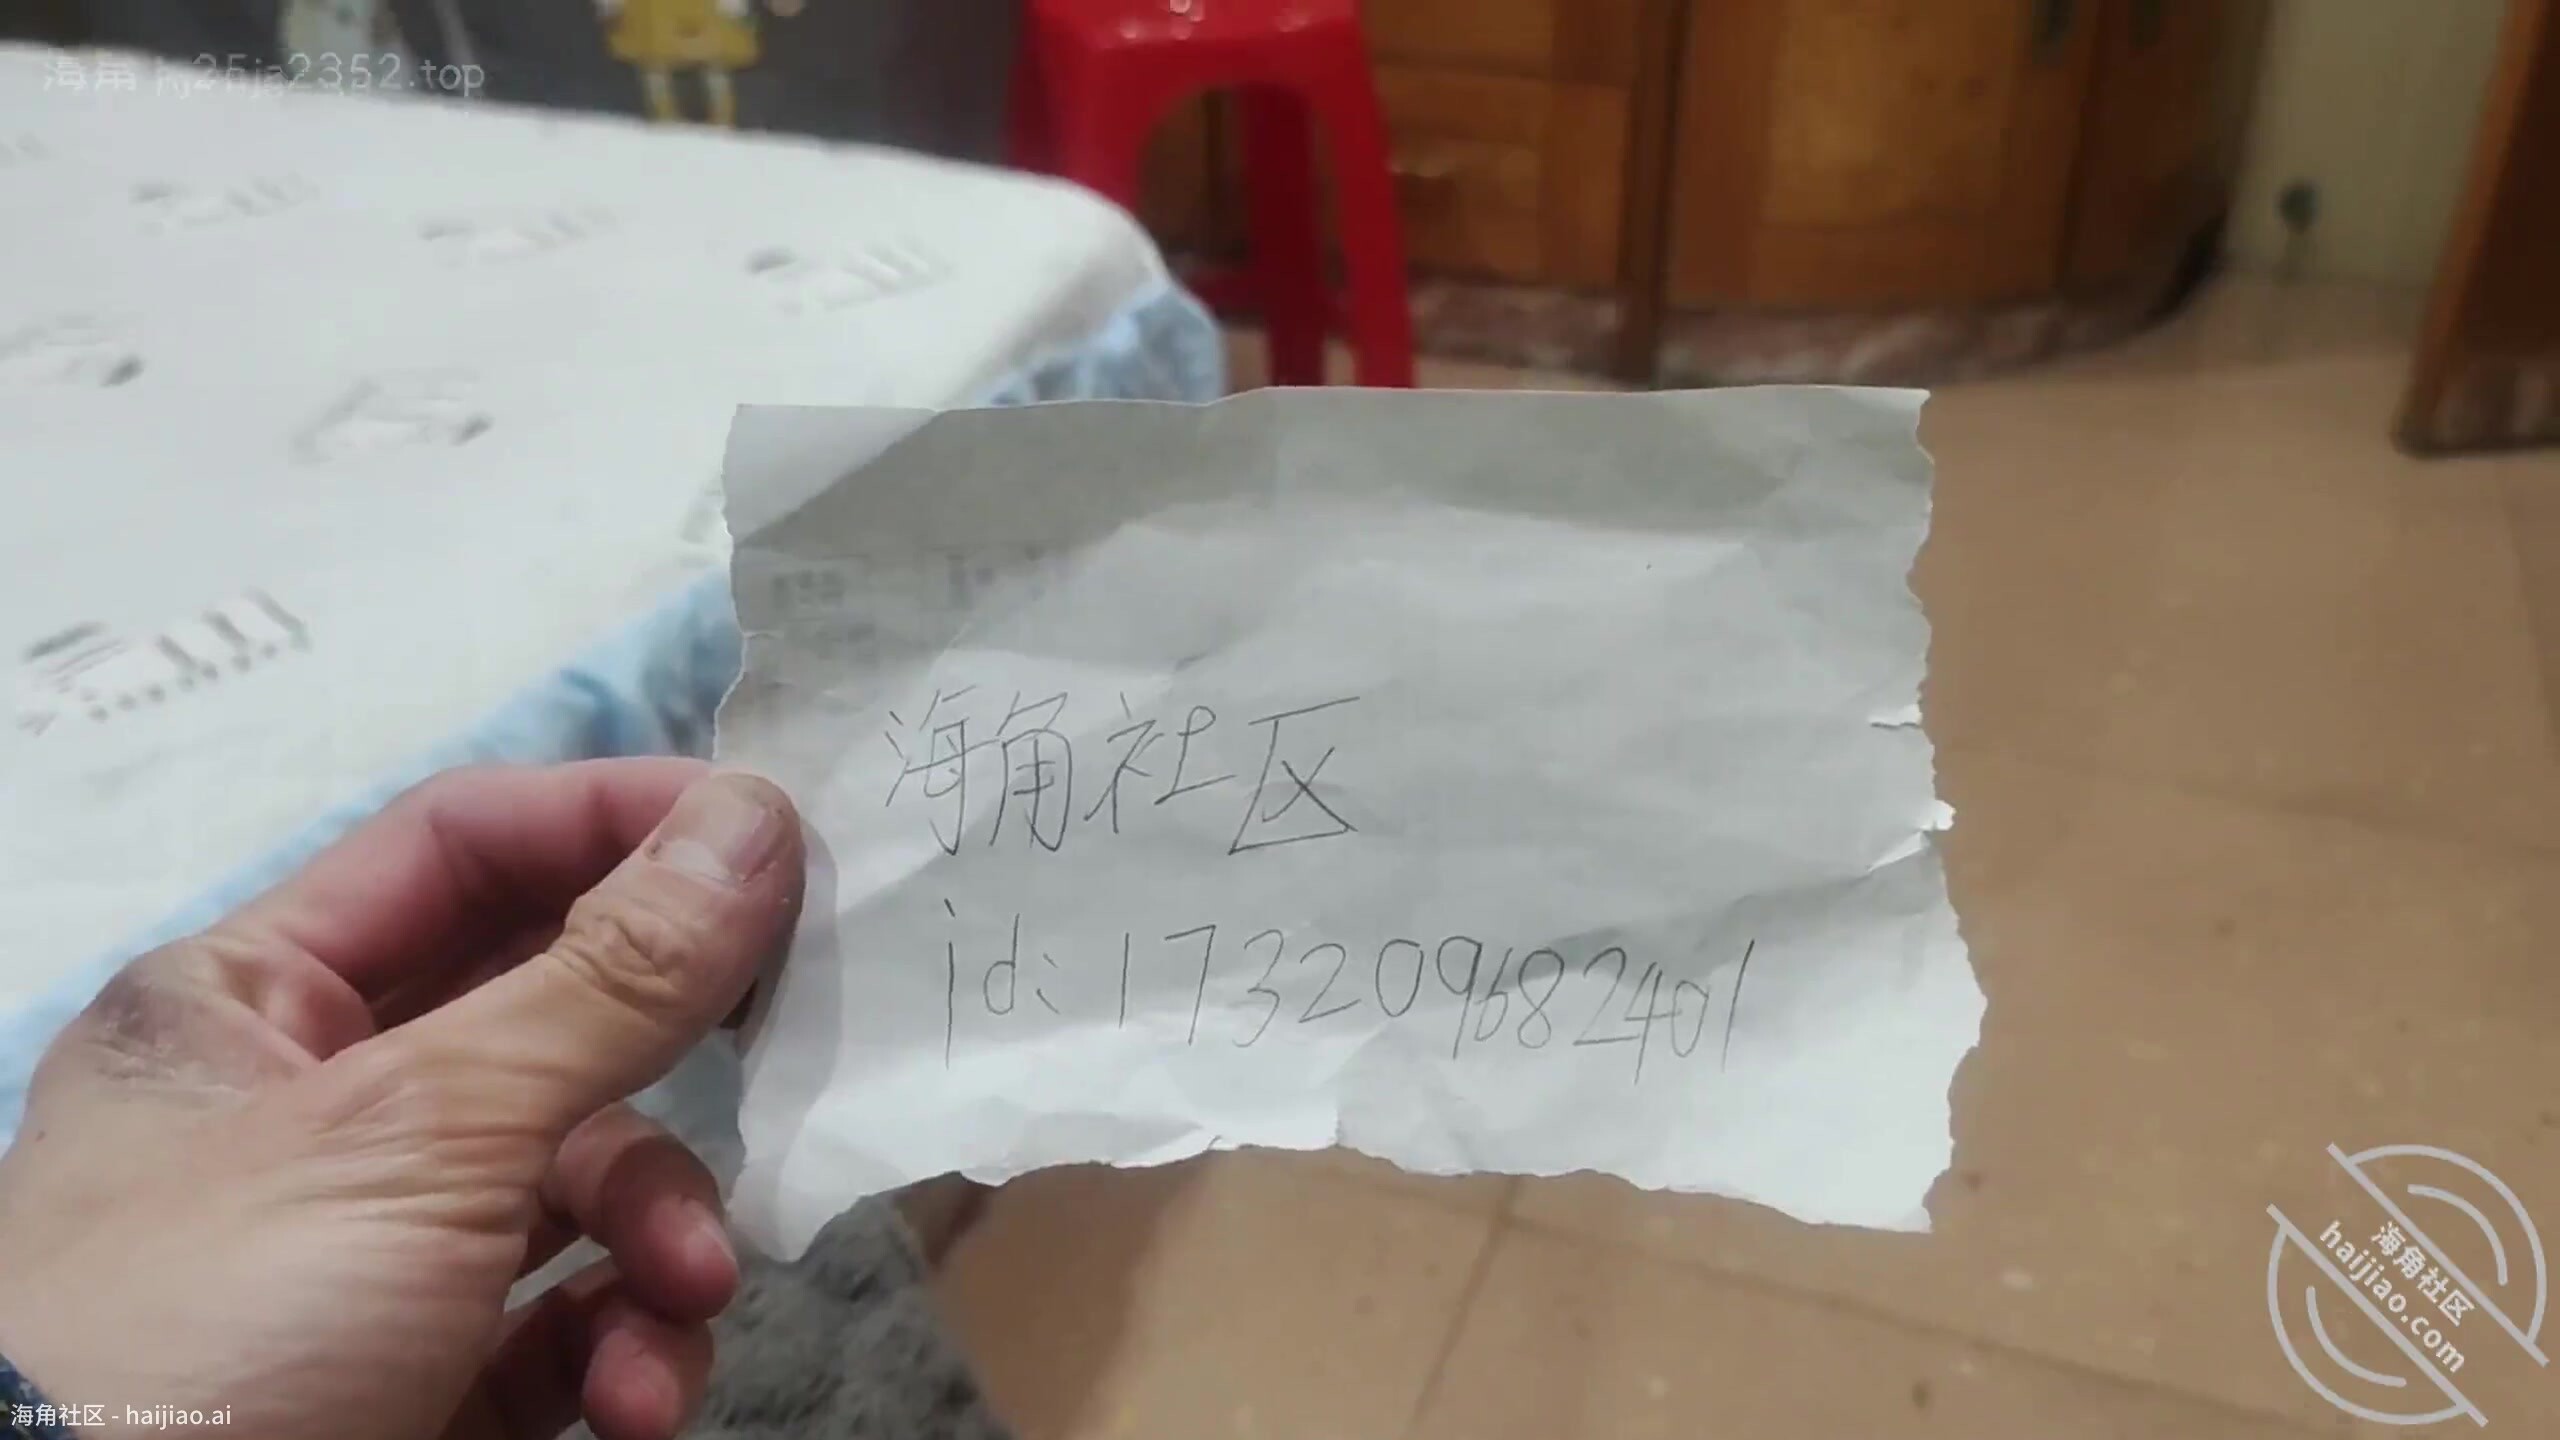 海角 hj25ja2352.top
海角社区
id:173209682401
海角社区
haijiao.com
海角社区 - haijiao.ai